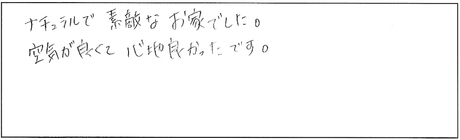 ナチュラルで 素敵な お家でした。
空気が良くて 心地良かったです。